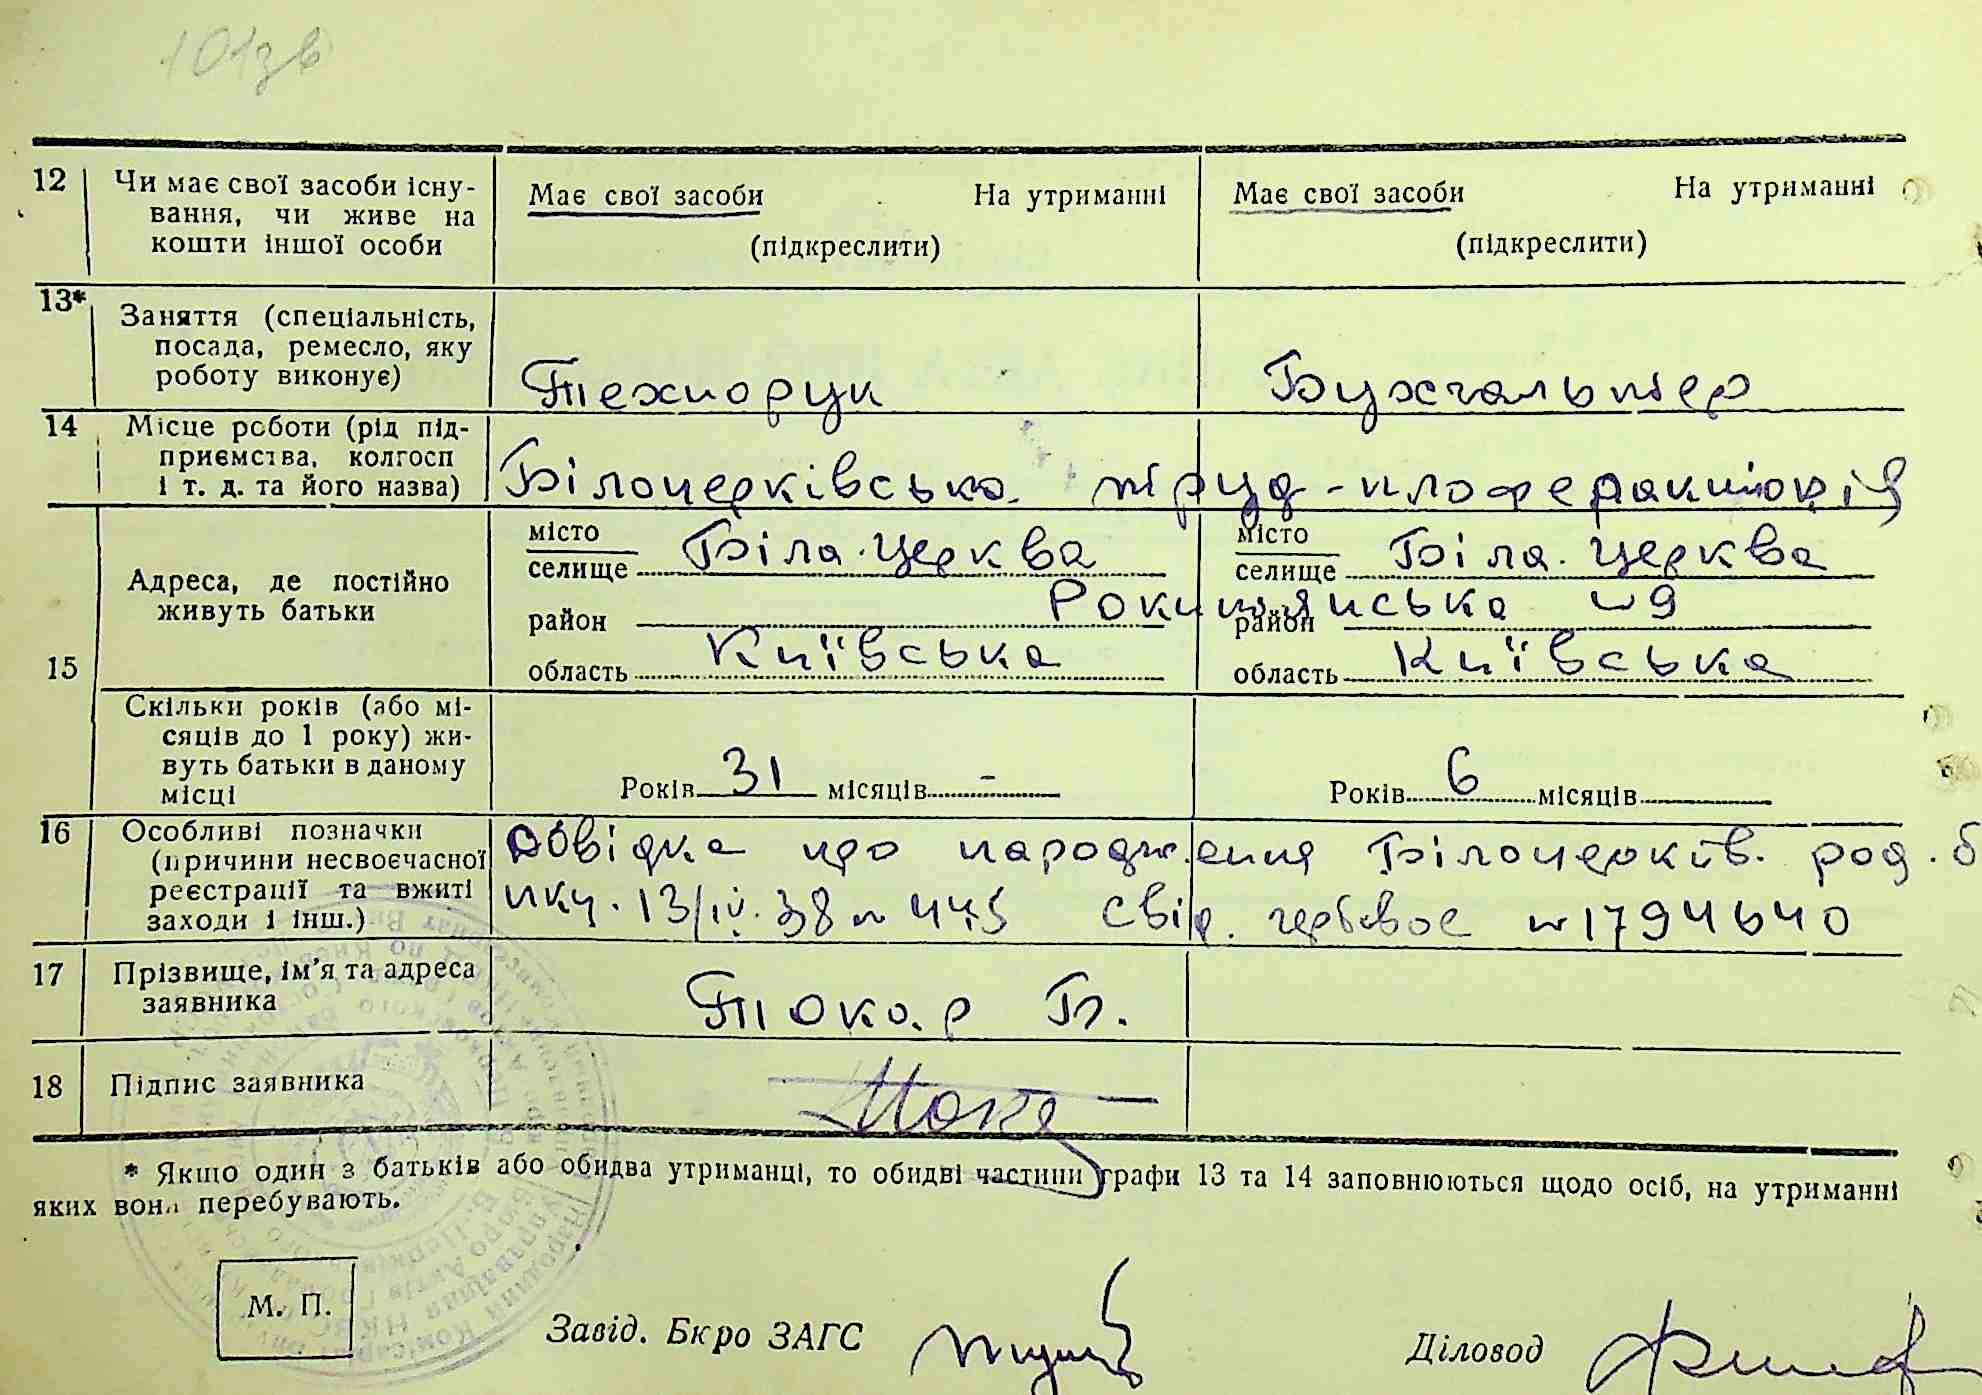 101зв
12 Чи має свої засоби існу-
вання, чи живе на
кошти іншої особи
Має свої засоби На утриманні
(підкреслити)
Має свої засоби На утриманні
(підкреслити)
13* Заняття (спеціальність,
посада, ремесло, яку
роботу виконує)
Технорук
Бухгальтер
14 Місце роботи (рід під-
приємства, колгосп
і т. д. та його назва)
Білоцерківська
15 Адреса, де постійно
живуть батьки
місто
селище Біла Церква
район
область Київська
місто
селище Біла Церква
Рокитянська №9
район
область Київська
Скільки років (або мі-
сяців до 1 року) жи-
вуть батьки в даному
місці
Років 31 місяців -
Років 6 місяців
16 Особливі позначки
(причини несвоєчасної
реєстрації та вжиті
заходи і інш.)
Довідка про народження Білоцерків. род. б
13/IV.38 № 445 Свід. гербовое № 1794640
17 Прізвище, ім'я та адреса
заявника
Токар Б.
18 Підпис заявника
Токар
* Якщо один з батьків або обидва утриманці, то обидві частини графи 13 та 14 заповнюються щодо осіб, на утриманні
яких вони перебувають.
М. П.
Завід. Бюро ЗАГС
Діловод